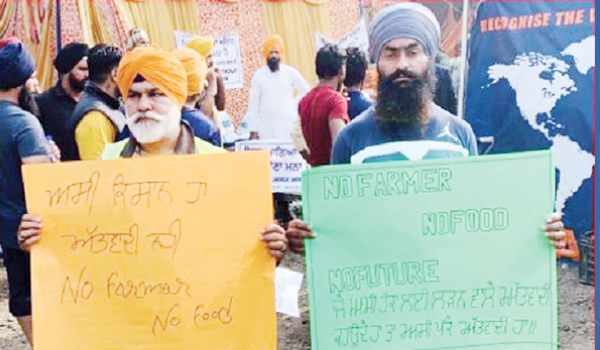 RECOGNISE THE
ਅਸੀ ਕਿਸਾਨ ਹਾ
ਅੱਤਵਾਦੀ ਨਹੀ
No Farmer
No Food
NO FARMER
NO FOOD
NO FUTURE
ਜੇ ਅਸੀ ਹੱਕ ਲਈ ਲੜਨ ਵਾਲੇ ਅੱਤਵਾਦੀ
ਤਾ ਅਸੀ ਅੱਤਵਾਦੀ ਹਾ॥